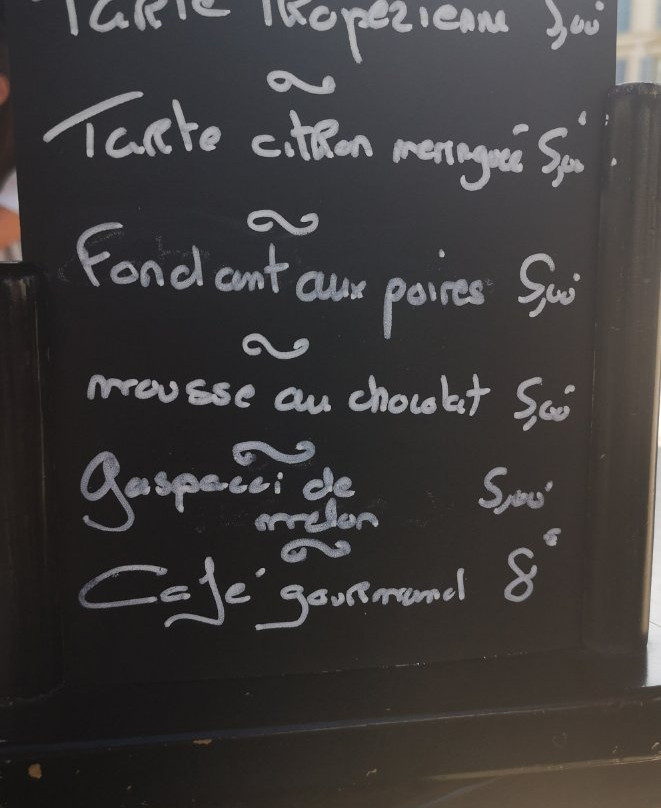 Tarte Tropézienne 5,00
Tarte citron meringuée 5,00
Fondant aux poires 5,00
mousse au chocolat 5,00
gaspacci de 5,00
melon
Café gourmand 8€